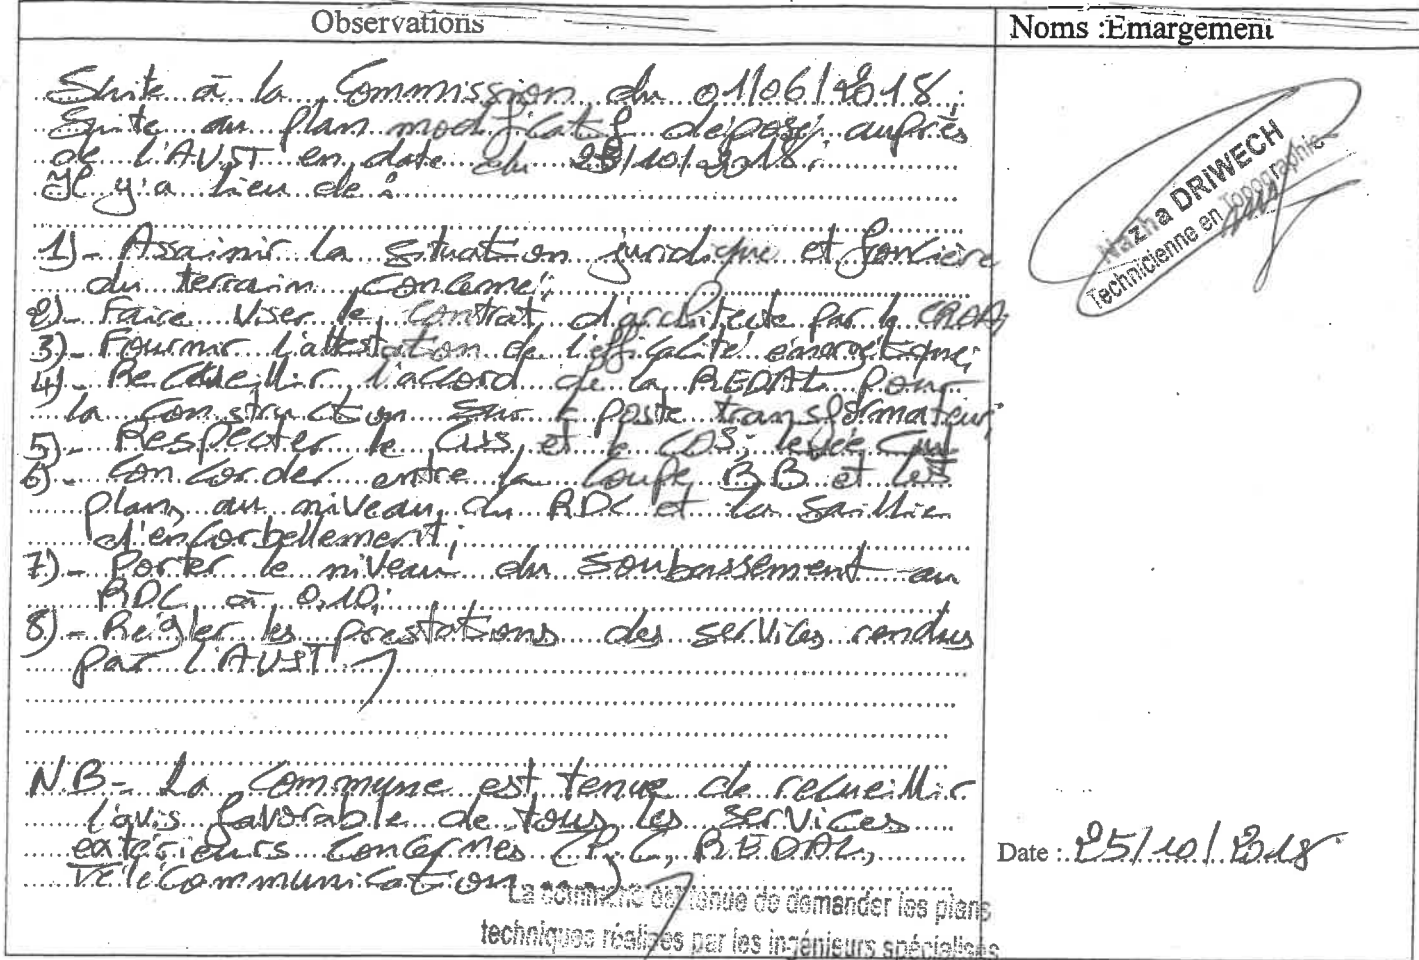 Observations
Noms :Emargement
Suite à la Commission du 01/06/2018;
Suite au plan modificatif déposé auprès
de l'AUST en date du 23/10/2018;
Il y'a lieu de :
1)- Assainir la situation juridique et foncière
du terrain concerné;
2)- Faire viser le contrat d'architecte par le CROA;
3)- Fournir l'attestation de l'efficacité énergétique;
4)- Recueillir l'accord de la REDAL pour
la construction sur le poste transformateur;
5)- Respecter le CUS et le COS;
6)- Concorder entre la coupe BB et les
plans au niveau du RDC et la saillie
d'encorbellement;
7)- Porter le niveau du soubassement au
RDC à 0,10;
8)- Régler les prestations des services rendus
par l'AUST
N.B- La Commune est tenue de recueillir
l'avis favorable de tous les services
extérieurs concernés (P.C, REDAL,
Télécommunication ...)
La commune est tenue de demander les plans
techniques réalisés par les ingénieurs spécialisés
Naziha DRIWECH
Technicienne en Topographie
Date : 25/10/2018